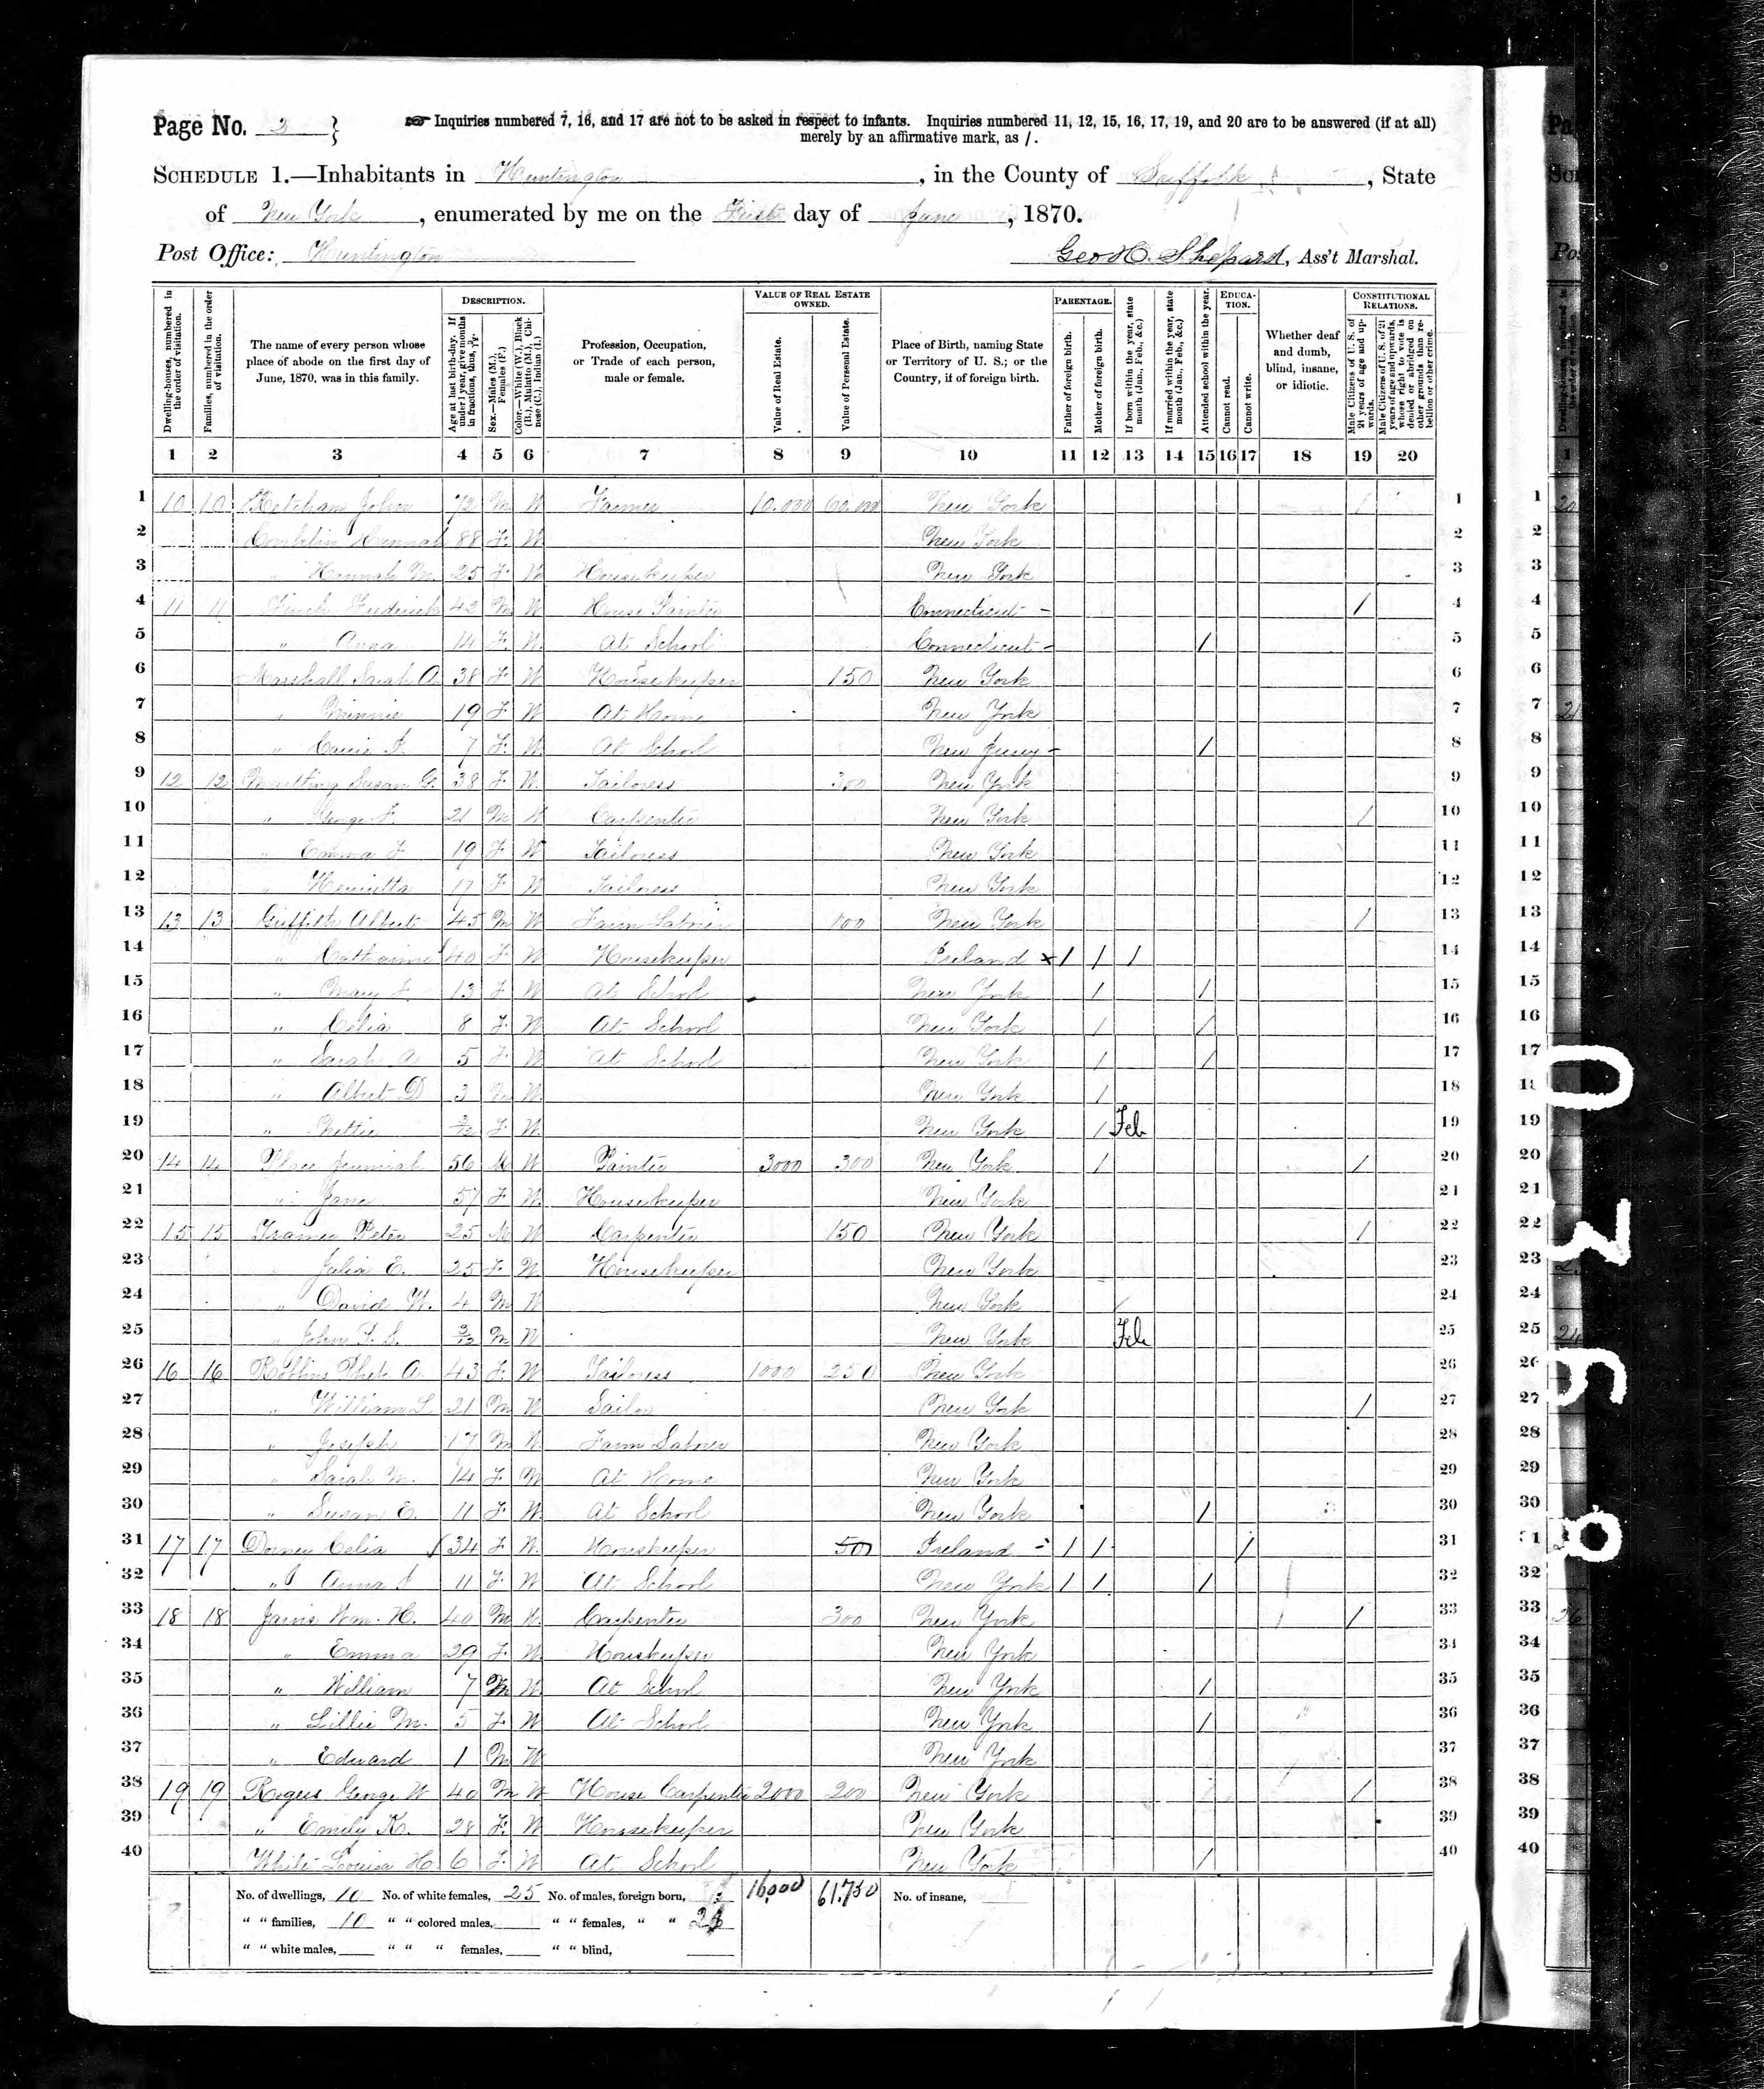 Page No. 2 }
☞ Inquiries numbered 7, 16, and 17 are not to be asked in respect to infants. Inquiries numbered 11, 12, 15, 16, 17, 19, and 20 are to be answered (if at all)
merely by an affirmative mark, as /.
SCHEDULE 1.—Inhabitants in Huntington, in the County of Suffolk, State
of New York, enumerated by me on the First day of June, 1870.
Post Office: Huntington Geo H. Shepard, Ass't Marshal.
Dwelling-houses, numbered in the order of visitation.
Families, numbered in the order of visitation.
The name of every person whose place of abode on the first day of June, 1870, was in this family.
DESCRIPTION.
Age at last birth-day. If under 1 year, give months in fractions, thus, 3/12.
Sex.—Males (M.), Females (F.)
Color.—White (W.), Black (B.), Mulatto (M.), Chinese (C.), Indian (I.)
Profession, Occupation, or Trade of each person, male or female.
VALUE OF REAL ESTATE OWNED.
Value of Real Estate.
Value of Personal Estate.
Place of Birth, naming State or Territory of U. S.; or the Country, if of foreign birth.
PARENTAGE.
Father of foreign birth.
Mother of foreign birth.
If born within the year, state month (Jan., Feb., &c.)
If married within the year, state month (Jan., Feb., &c.)
Attended school within the year.
EDUCATION.
Cannot read.
Cannot write.
Whether deaf and dumb, blind, insane, or idiotic.
CONSTITUTIONAL RELATIONS.
Male Citizens of U. S. of 21 years of age and upwards.
Male Citizens of U. S. of 21 years of age and upwards, whose right to vote is denied or abridged on other grounds than rebellion or other crime.
1 2 3 4 5 6 7 8 9 10 11 12 13 14 15 16 17 18 19 20
1 10 10 Ketcham John 72 M W Farmer 10.000 60.000 New York / 1
2 Conklin Hannah 88 F. W New York 2
3 " Hannah M. 25 F. W. Housekeeper New York 3
4 11 11 Finch Frederick 42 M W House Painter Connecticut - / 4
5 " Anna 14 F. W. At School Connecticut - / 5
6 Marshall Sarah A. 38 F W Housekeeper 150 New York 6
7 " Minnie 19 F. W At Home New York 7
8 " Carrie F. 7 F. W. At School New Jersey - / 8
9 12 12 Susan G. 38 F W. Tailoress 300 New York 9
10 " George F. 21 M W Carpenter New York / 10
11 " Emma F 19 F W Tailoress New York 11
12 " Henrietta 17 F. W Tailoress New York 12
13 13 13 Griffith Albert 45 M W Farm Laborer 100 New York / 13
14 " Catharine 40 F W Housekeeper Ireland x / / / 14
15 " Mary F. 13 F W At School New York / / 15
16 " Celia 8 F. W. At School New York / / 16
17 " Sarah A. 5 F. W At School New York / / 17
18 " Albert D 3 M W. New York / 18
19 " Nettie 3/12 F. W. New York / Feb 19
20 14 14 Place Jeremiah 56 M W Painter 3000 300 New York / / 20
21 " Jane 57 F W. Housekeeper New York 21
22 15 15 Peter 25 M W Carpenter 150 New York / 22
23 " Julia E. 25 F. W. Housekeeper New York 23
24 " David W. 4 M W New York 24
25 " John 3/12 M W New York Feb 25
26 16 16 Robbins Pheb A. 43 F. W Tailoress 1000 250 New York 26
27 " William L 21 M W Sailor New York / 27
28 " Joseph 17 M W. Farm Laborer New York 28
29 " Sarah M. 14 F. W At Home New York 29
30 " Susan E. 11 F. W. At School New York / 30
31 17 17 Celia 34 F. W. Housekeeper 500 Ireland / / / 31
32 " Anna 11 F. W At School New York / / / 32
33 18 18 Jarvis Wm. H. 40 M W. Carpenter 300 New York / 33
34 " Emma 29 F. W. Housekeeper New York 34
35 " William 7 M W. At School New York / 35
36 " Lillie M. 5 F. W At School New York / 36
37 " Edward 1 M W. New York 37
38 19 19 Rogers George W 40 M W House Carpenter 2000 200 New York / 38
39 " Emily K. 28 F. W Housekeeper New York 39
40 White Louisa H 6 F. W At School New York / 40
No. of dwellings, 10 No. of white females, 25 No. of males, foreign born, 16,000 61.750 No. of insane,
" " families, 10 " " colored males, " " females, " " 2
" " white males, " " " females, " " blind,